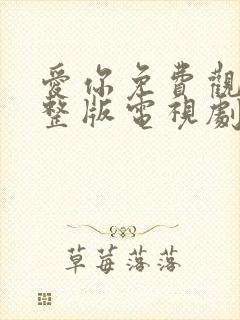 愛你免費觀
整版電視劇
草莓落落